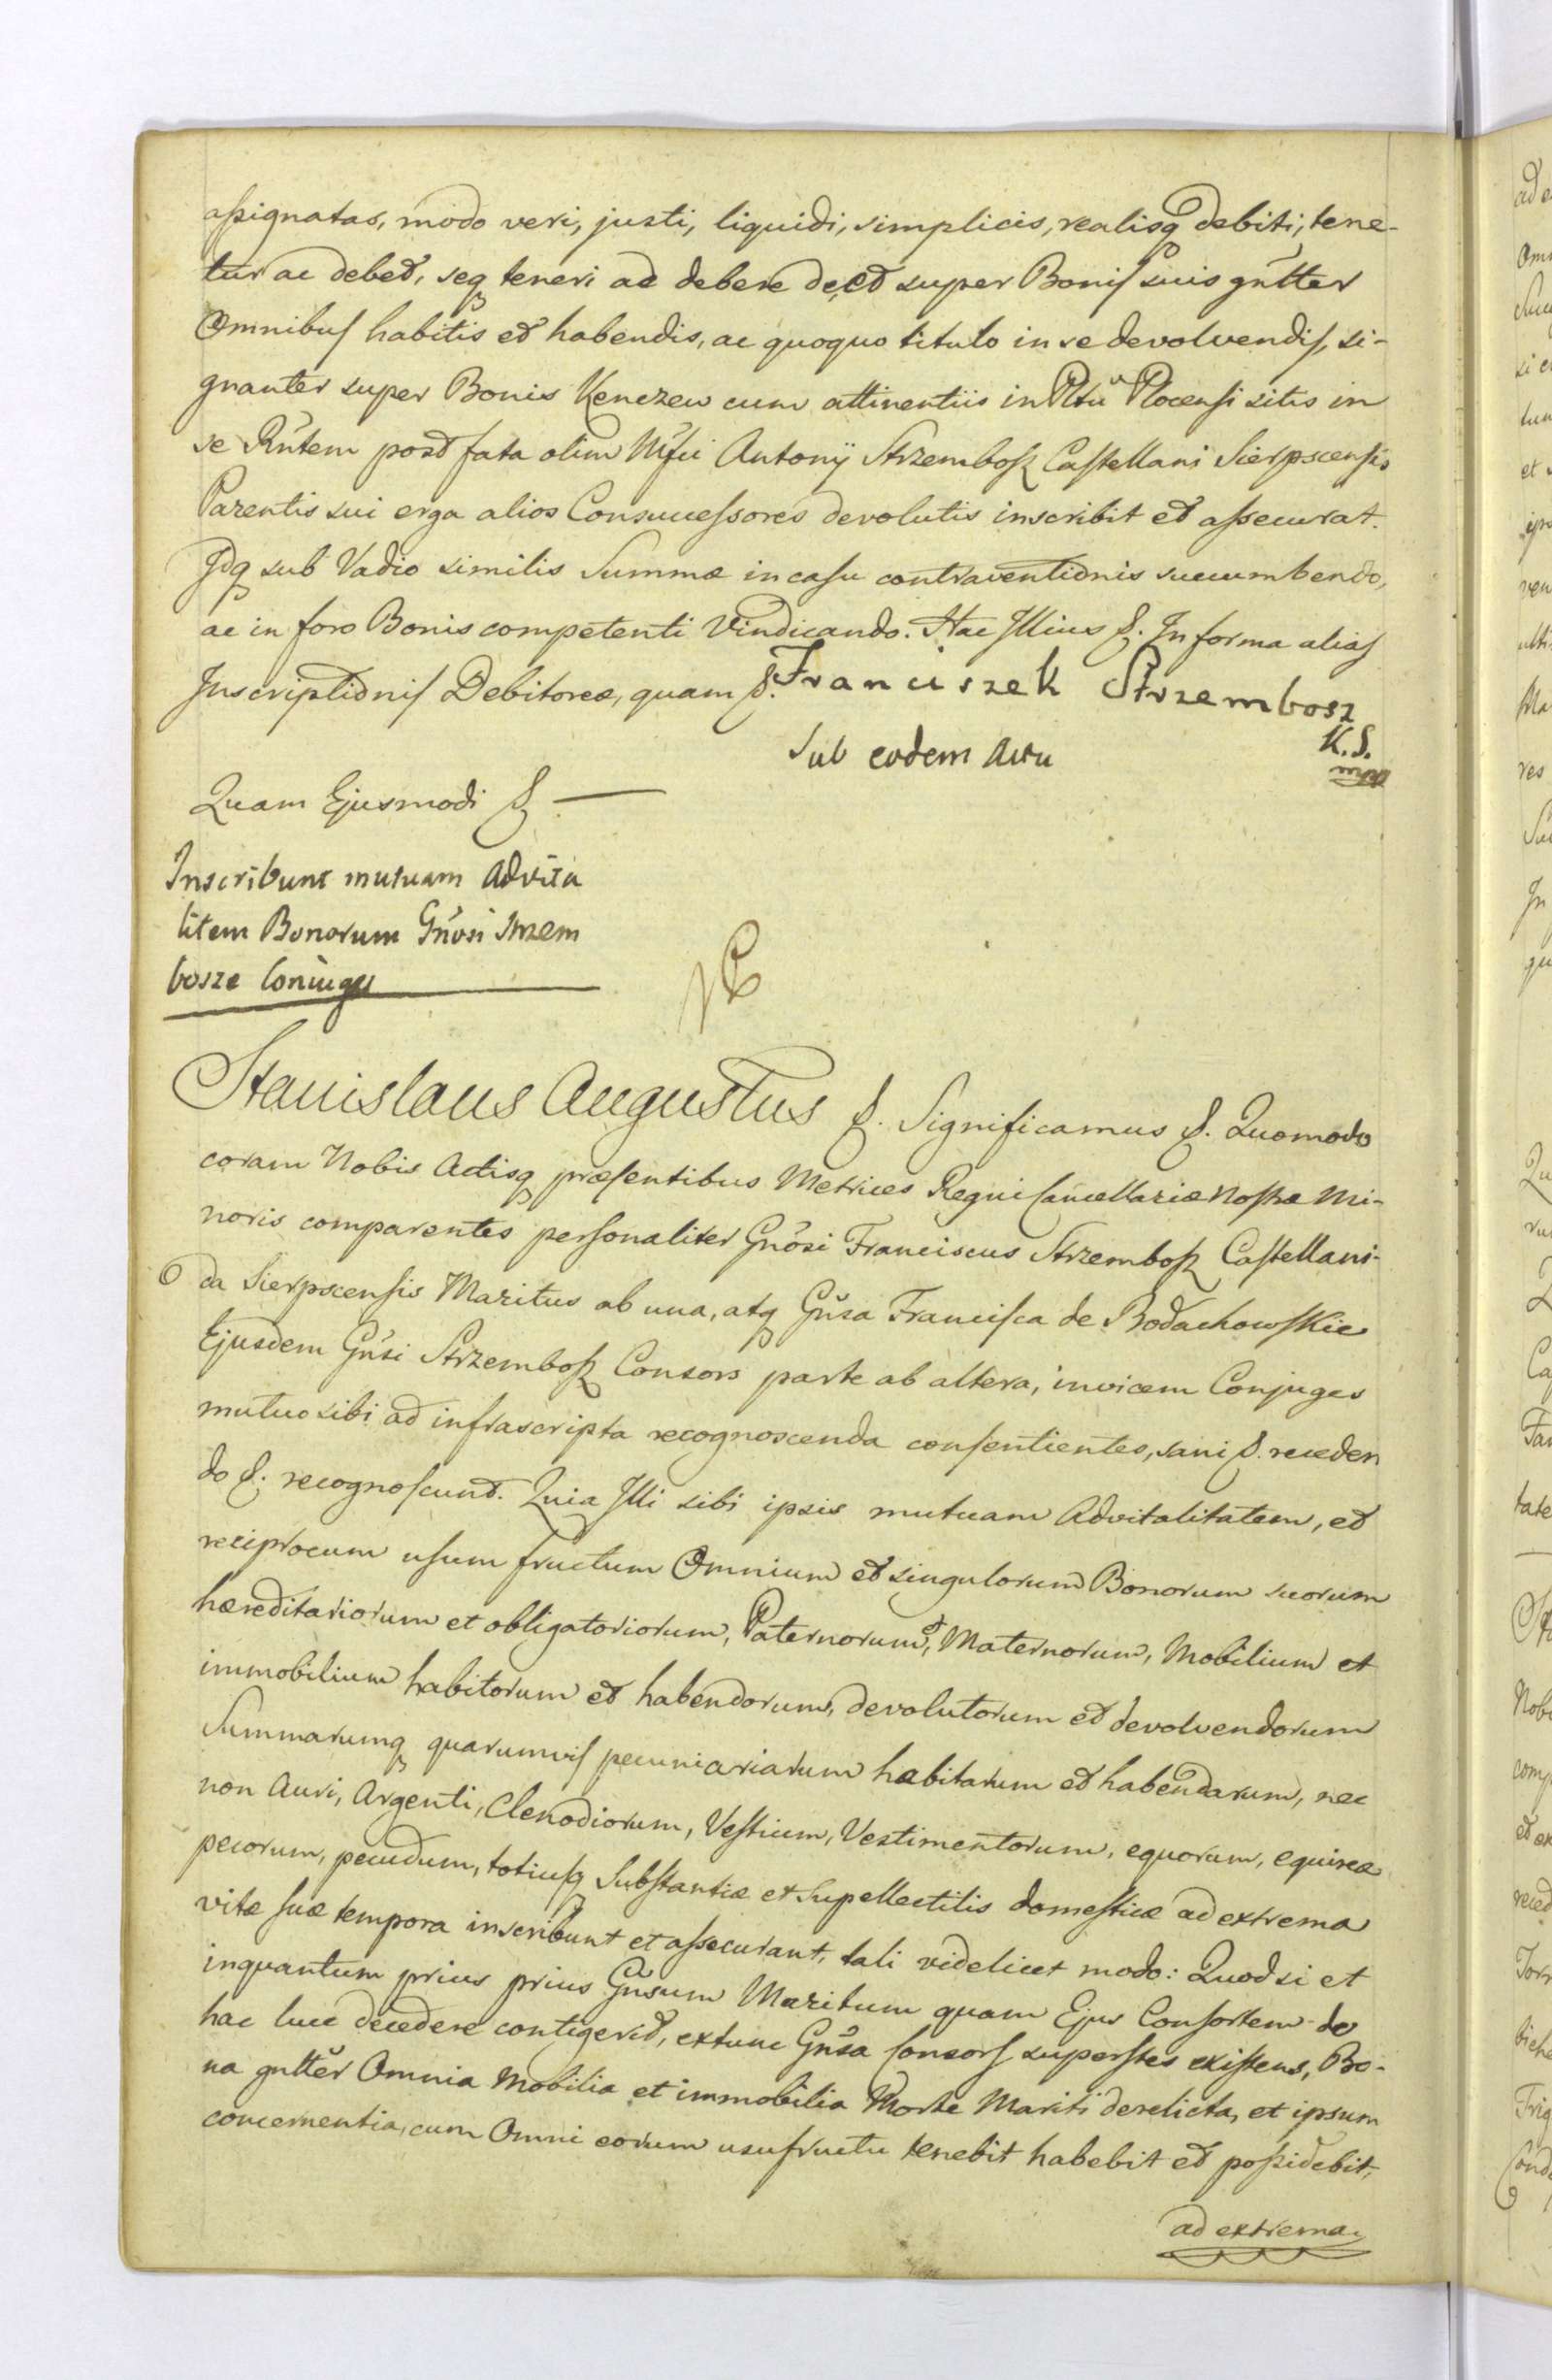 assignatas, modo veri, justi, liquidi, simplicis, realisq debiti, tene-
tur ac debet, seq teneri ac debere et super Bonis suis gnlter
Omnibus habitis et habendis, ac quoquo titulo in se devolvendis, si-
gnanter super Bonis Kenczew cum attinentiis in Pltu Plocensi sitis in
se Rntem post fata olim Mfci Antonij Strzembosz Castellani Sierpscensis
Parentis sui erga alios Consuccessores devolutis inscribit et assecurat.
Idq sub Vadio similis Summæ in casu contraventionis succumbendo,
ac in foro Bonis competenti Vindicando. Hac Illius &. In forma alias
Inscriptionis Debitoreæ, quam &. Franciszek Strzembosz
K.S.
mpp
Sub eodem Actu
Quam Ejusmodi &
Inscribunt mutuam Advita
litem Bonorum Gnosi Strzem
bosze Coniuges
Stanislaus Augustus &. Significamus &. Quomodo
coram Nobis Actisq præsentibus Metrices Regni Cancellariæ Nostræ Mi-
noris comparentes personaliter Gnosi Franciscus Strzembosz Castellani-
da Sierpscensis Maritus ab una, atq Gnsa Francisca de Bodachowskie
Ejusdem Gnsi Strzembosz Consors parte ab altera, invicem Conjuges
mutuo sibi ad infrascripta recognoscenda consentientes, sani &. receden
do &. recognoscunt. Quia Illi sibi ipsis mutuam Advitalitatem, et
reciprocum usum fructum Omnium et singulorum Bonorum suorum
hæreditariorum et obligatoriorum, Paternorum, Maternorum, Mobilium et
immobilium habitorum et habendorum, devolutorum et devolvendorum
Summarumq quarumvis pecuniariarum habitarum et habendarum, nec
non Auri, Argenti, Clenodiorum, Vestium, Vestimentorum, equorum, equireæ
pecorum, pecudum, totiusq Substantiæ et Supellectilis domesticæ ad extrema
vitæ suæ tempora inscribunt et assecurant, tali videlicet modo: Quod si et
inquantum prius prius Gnsum Maritum quam Ejus Consortem de
hac luce decedere contigerit, extunc Gnsa Consors superstes existens, Bo-
na gnlter Omnia Mobilia et immobilia Morte Mariti derelicta, et ipsum
concernentia, cum Omni eorum usufructu tenebit habebit et possidebit,
ad extrema